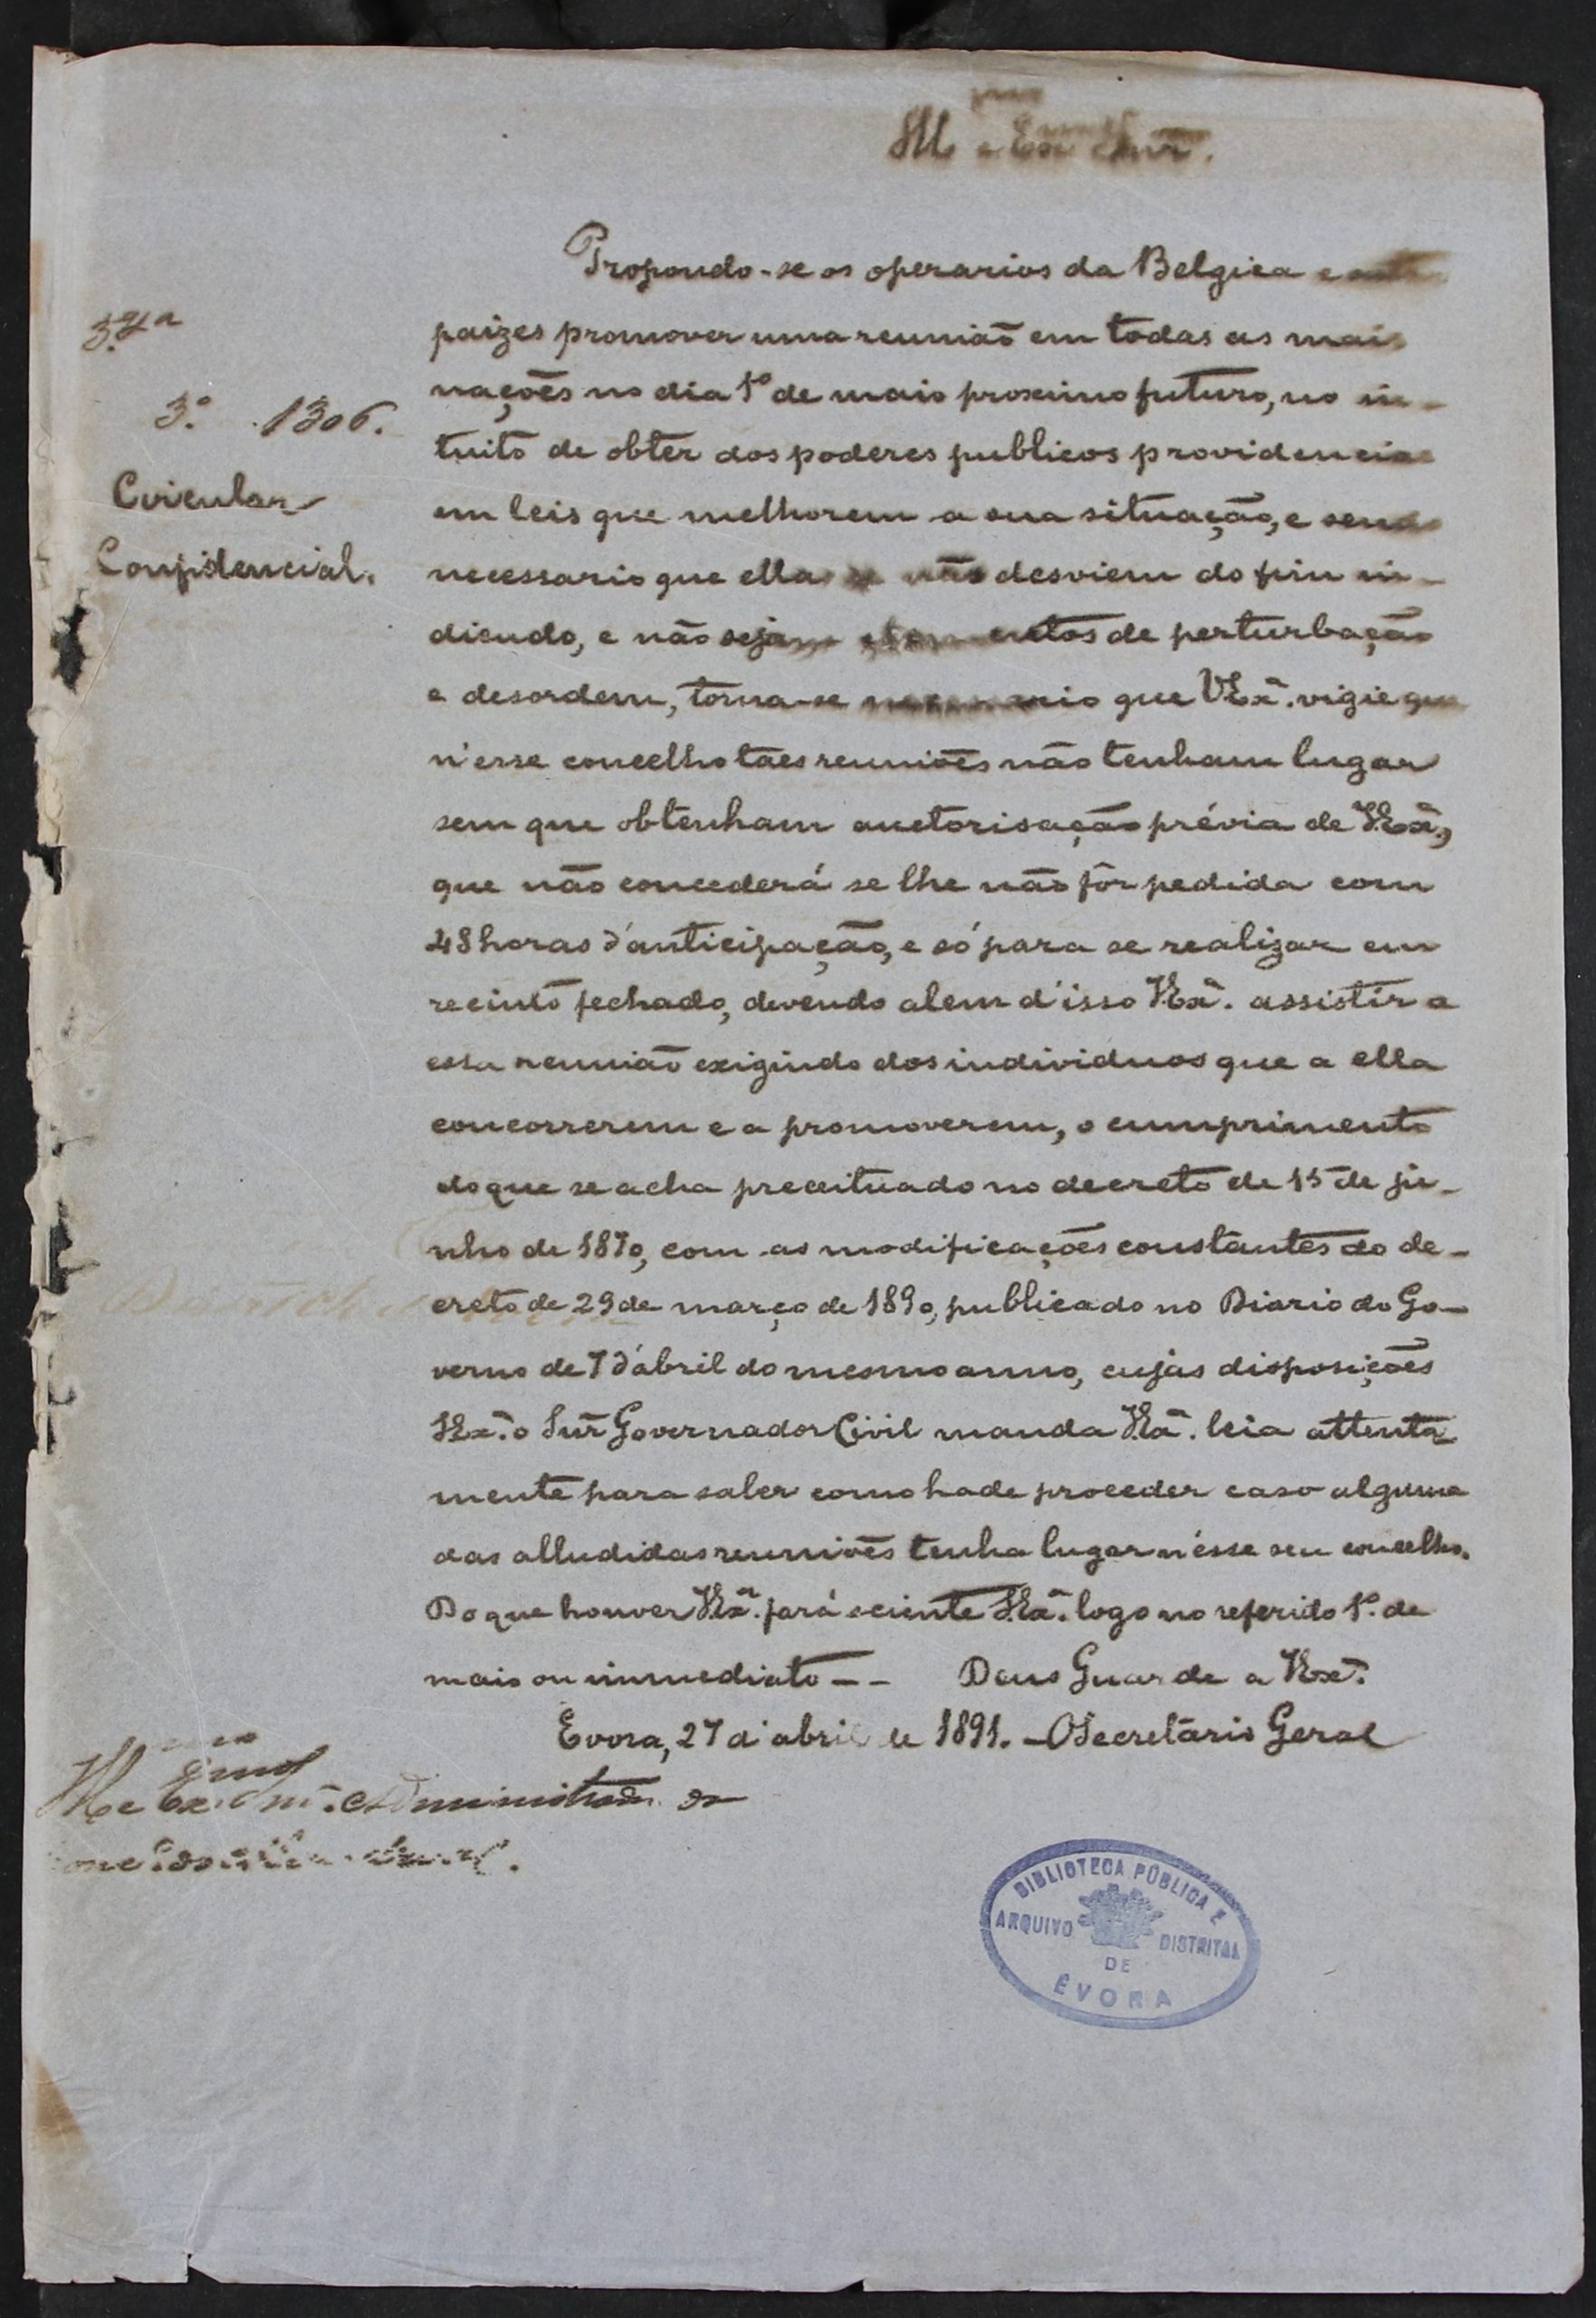 Ill.mo e Ex.mo Snr.
Propondo-se os operarios da Belgica e outros
3.ª
paizes promover uma reunião em todas as mais
nações no dia 1º de maio proximo futuro, no in-
3.º 1306.
tuito de obter dos poderes publicos providencias
Circular
em leis que melhorem a sua situação, e sendo
Confidencial.
necessario que ellas se não desviem do fim in-
dicado, e não sejam elementos de perturbação
e desordem, torna-se necessario que V.Exª. vigie que
n'esse concelho taes reuniões não tenham lugar
sem que obtenham auctorisação prévia de V.Exª.,
que não concederá se lhe não fôr pedida com
48 horas d'anticipação, e só para se realizar em
recinto fechado, devendo alem d'isso V.Exª. assistir a
essa reunião exigindo dos individuos que a ella
concorrerem e a promoverem, o cumprimento
do que se acha preceituado no decreto de 15 de ju-
nho de 1870, com as modificações constantes do de-
creto de 29 de março de 1890, publicado no Diario do Go-
verno de 7 d'abril do mesmo anno, cujas disposições
S.Exª. o Snr Governador Civil manda V.Exª. leia attenta
mente para saber como hade proceder caso alguma
das alludidas reuniões tenha lugar n'esse seu concelho.
Do que houver V.Exª. fará sciente S.Exª. logo no referido 1º. de
maio ou immediato -- Deus Guarde a V.Exª.
Evora, 27 d'abril de 1891. - O Secretario Geral
Ill.mo e Ex.mo Snr. Administrador do
BIBLIOTECA PÚBLICA E
ARQUIVO DISTRITAL
DE
ÉVORA